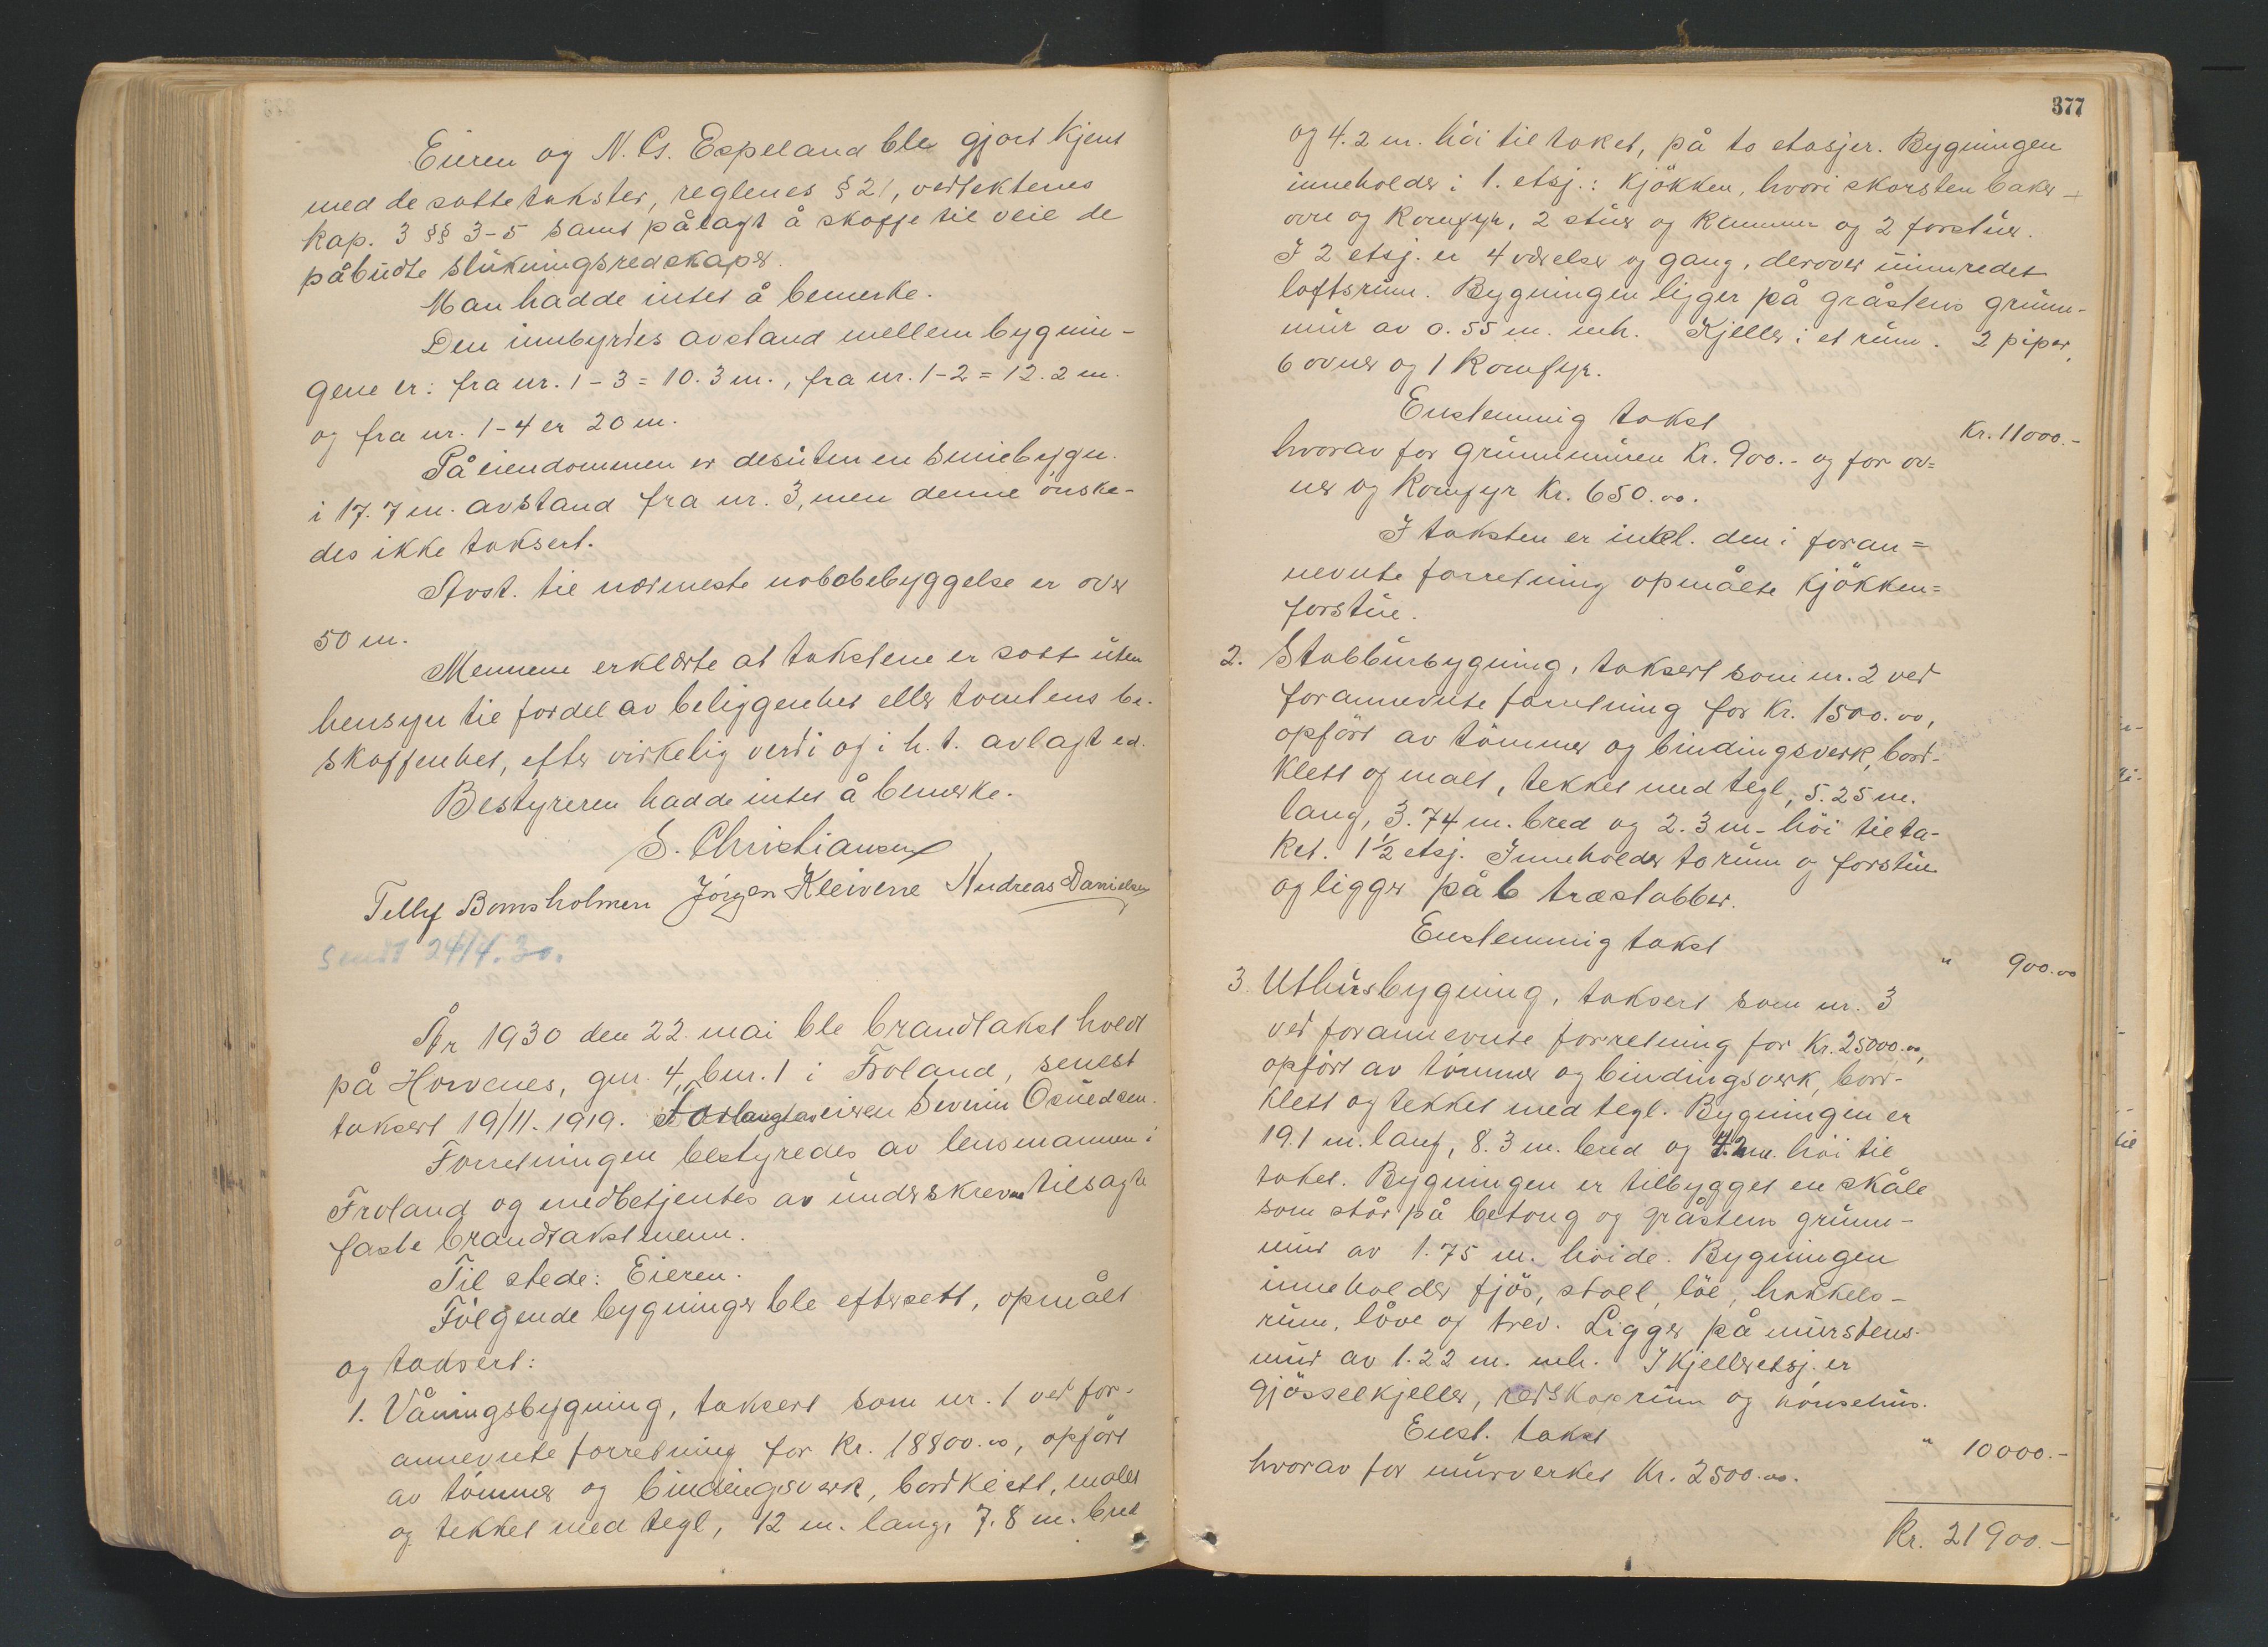 Eieren og N. Gs. Espeland ble gjort kjent
med de satte takster, reglenes § 21, vedtektenes
kap. 3 §§ 3-5 samt pålagt å skaffe til veie de
påbudte slukningsredskaper.
Man hadde intet å bemerke.
Den innbyrdes avstand mellem bygnin-
gene er: fra nr. 1-3 = 10.3 m., fra nr. 1-2 = 12.2 m.
og fra nr. 1-4 er 20 m.
På eiendommen er desuten en smiebygn.
i 17.7 m. avstand fra nr. 3, men denne önske-
des ikke taksert.
Avst. til nærmeste nabobebyggelse er over
50 m.
Mennene erklærte at takstene er satt uten
hensyn til fordel av beliggenhet eller tomtens be-
skaffenhet, efter virkelig verdi og i h. t. avlagt ed.
Bestyreren hadde intet å bemerke.
S. Christiansen
Telly Bomsholmen Jörgen Kleivene Andreas Danielsen
Sendt 24/4.30.
År 1930 den 22. mai ble brandtakst holdt
på Horvenes, gnr. 4, bnr. 1 i Froland, senest
taksert 19/11.1919. Forlangt av eieren Severin Osuldsen.
Forretningen bestyredes av lensmannen i
Froland og medbetjentes av underskrevne tilsagte
faste brandtakstmenn.
Til stede: Eieren.
Fölgende bygninger ble eftersett, opmålt
og taksert:
1. Våningsbygning, taksert som nr. 1 ved for-
annevnte forretning for kr. 18800.00, opfört
av tömmer og bindingsverk, bordklett, malet
og tekket med tegl, 12 m. lang, 7.8 m. bred
377
og 4.2 m. höi til taket, på to etasjer. Bygningen
inneholder i 1. etsj.: kjökken, hvori skorsten baker-
ovn og komfyr, 2 stuer og kammer og 2 forstuer.
I 2 etsj. er 4 værelser og gang, derover uinnredet
loftsrum. Bygningen ligger på gråstens grunn-
mur av 0.55 m. mh. Kjeller i et rum. 2 piper,
6 ovner og 1 komfyr.
Enstemmig takst
Kr. 11000.-
hvorav for grunnmuren kr. 900.- og for ov=
ner og komfyr kr. 650.00.
I taksten er inkl. den i foran=
nevnte forretning opmålte kjökken=
forstue.
2. Stabbursbygning, taksert som nr. 2 ved
forannevnte forretning for kr. 1500.00,
opfört av tömmer og bindingsverk, bord-
klett og malt, tekket med tegl, 5.25 m.
lang, 3.74 m. bred og 2.3 m. höi til ta-
ket. 1 1/2 etsj. Inneholder to rum og forstue
og ligger på 6 træstabber.
Enstemmig takst
" 900.00
3. Uthusbygning, taksert som nr. 3
ved forannevnte forretning for kr. 25000.00,
opfört av tömmer og bindingsverk, bord-
klett og tekket med tegl. Bygningen er
19.1 m. lang, 8.3 m. bred og 4.2 m. höi til
taket. Bygningen er tilbygget en skåle
som står på betong og gråstens grunn-
mur av 1.75 m. höide. Bygningen
inneholder fjös, stall, löe, hakkels-
rum, låve og trev. Ligger på murstens
mur av 1.22 m. mh. I kjelleretsj. er
gjösselkjeller, redskaprum og hönsehus.
Enst. takst
" 10000.-
hvorav for murverket kr. 2500.00.
Kr. 21900.-